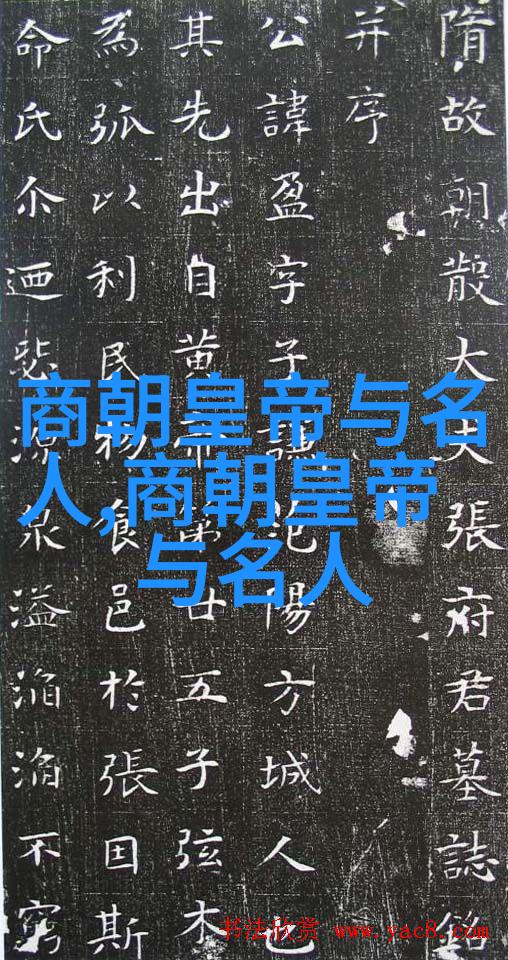 隋故朝散大夫張府君墓誌銘
并序
公諱盈字子陽方城人也
其先出自黄帝弟廿五子弦木
為弧以利民食邑於張因斯
命氏尒迺源泉溢滔滔不窮
商朝皇帝与名
人,商朝皇帝
与名人
书法欣赏 www.yac8.com